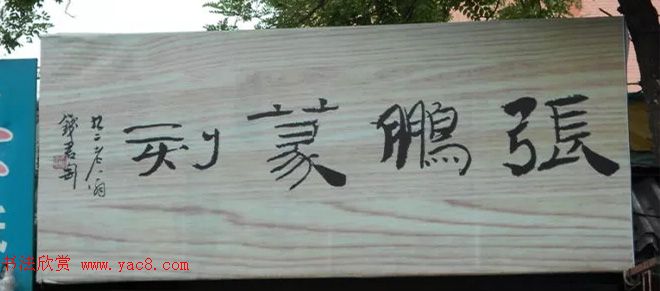 張鵬篆刻
錢君匋
书法欣赏 www.yac8.com